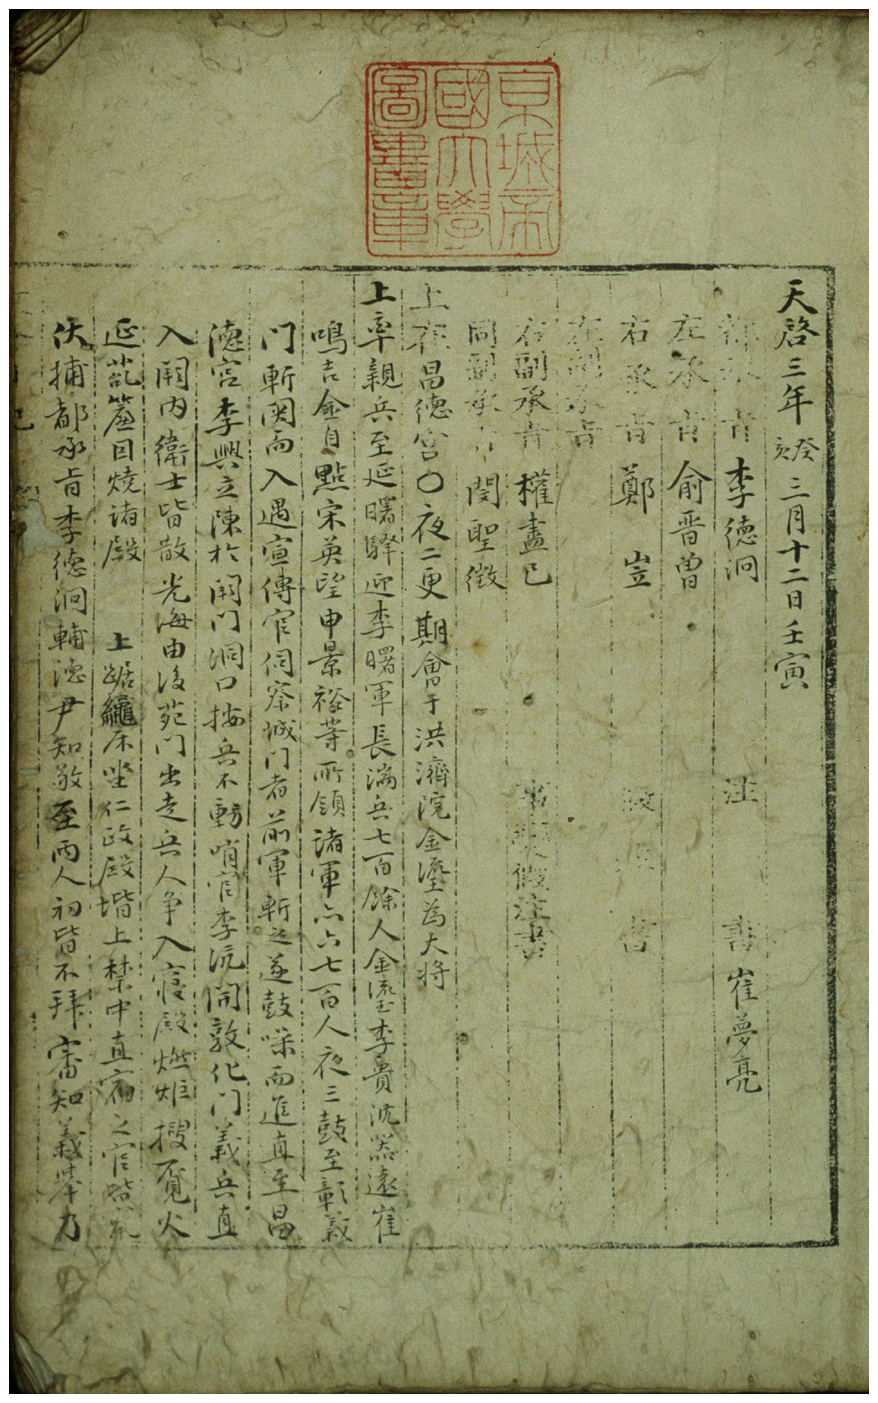 京城帝
國大學
圖書章
天啓三年癸亥三月十二日壬寅
都承旨李德泂 注書崔夢亮
左承旨俞晋曾
右承旨鄭岦 書
左副承旨
右副承旨權盡己 事變假注書
同副承旨閔聖徵
上在昌德宮○夜二更期會于洪濟院金瑬爲大將
上率親兵至延曙驛迎李曙軍長湍兵七百餘人金瑬李貴沈器遠崔
鳴吉金自點宋英望申景裕等所領諸軍亦六七百人夜三鼓至彰義
門斬関而入遇宣傳官伺察城門者前軍斬之遂鼓噪而進直至昌
德宮李興立陳於闕門洞口按兵不動哨官李沆開敦化門義兵直
入闕內衛士皆散光海由後苑門出走兵人争入寢殿燃炬搜覓火
延苽簾因燒諸殿 上踞繩床坐仁政殿堦上禁中直宿之官皆
伏捕都承旨李德泂輔德尹知敬至兩人初皆不拜審知義擧乃